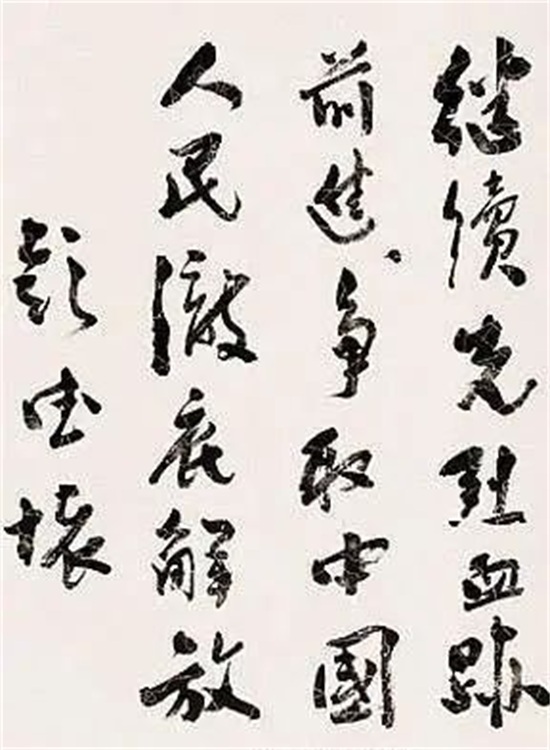 继續先烈血跡
前進、争取中國
人民澈底解放
彭德懷